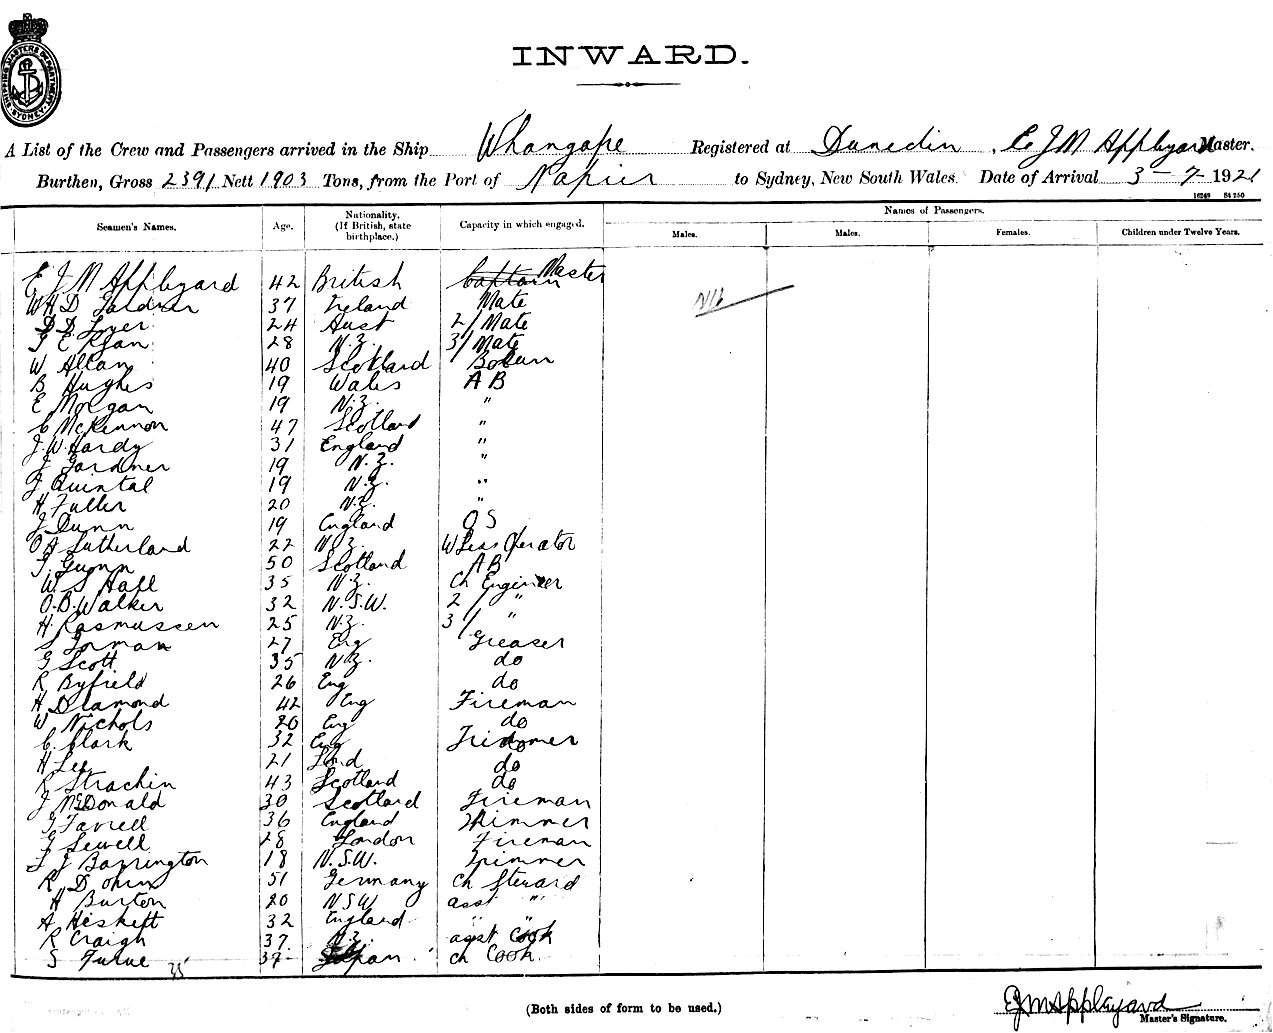 SHIPPING MASTERS DEPARTMENT SYDNEY
INWARD.
A List of the Crew and Passengers arrived in the Ship Whangape Registered at Dunedin, E J M Appleyard Master.
Burthen, Gross 2391 Nett 1903 Tons, from the Port of Napier to Sydney, New South Wales. Date of Arrival 3-7-1921
16249 84250
Seamen's Names. Age. Nationality. (If British, state birthplace.) Capacity in which engaged. Names of Passengers.
Males. Males. Females. Children under Twelve Years.
E J M Appleyard 42 British Captain Master
Nil
W H D Gardner 37 Ireland Mate
D D Loyer 24 Aust 2/Mate
E Ryan 28 N.Z. 3/Mate
W Allan 40 Scotland Bosun
B Hughes 19 Wales A B
E Morgan 19 N.Z. "
C McKinnon 47 Scotland "
J. W. Hardy 31 England "
J Gardner 19 N.Z. "
J Quintal 19 N.Z. "
H Fuller 20 N.Z. "
J Dunn 19 England O S
O A Sutherland 22 N.Z. W Less Operator
Gunn 50 Scotland A B
W. S Hall 35 N.Z. Ch Engineer
O. B. Walker 32 N.S.W. 2/ "
H. Rasmussen 25 N.Z. 3/ "
S Forman 27 Eng Greaser
G Scott 35 N.Z. do
R Byfield 26 Eng do
H Diamond 42 Eng Fireman
W Nichols 20 Eng do
C. Clark 32 Eng Trimmer
H Lee 21 do
R Strachin 43 Scotland do
J McDonald 30 Scotland Fireman
Farrell 36 England Trimmer
Sewell 28 London Fireman
J Barrington 18 N.S.W. Trimmer
R 51 Germany Ch Steward
H Burton 20 N S W asst "
A Heskett 32 England " "
R Craigh 37 N.Z. asst Cook
S 37 Japan Ch Cook
35
(Both sides of form to be used.)
EJMAppleyard
Master's Signature.